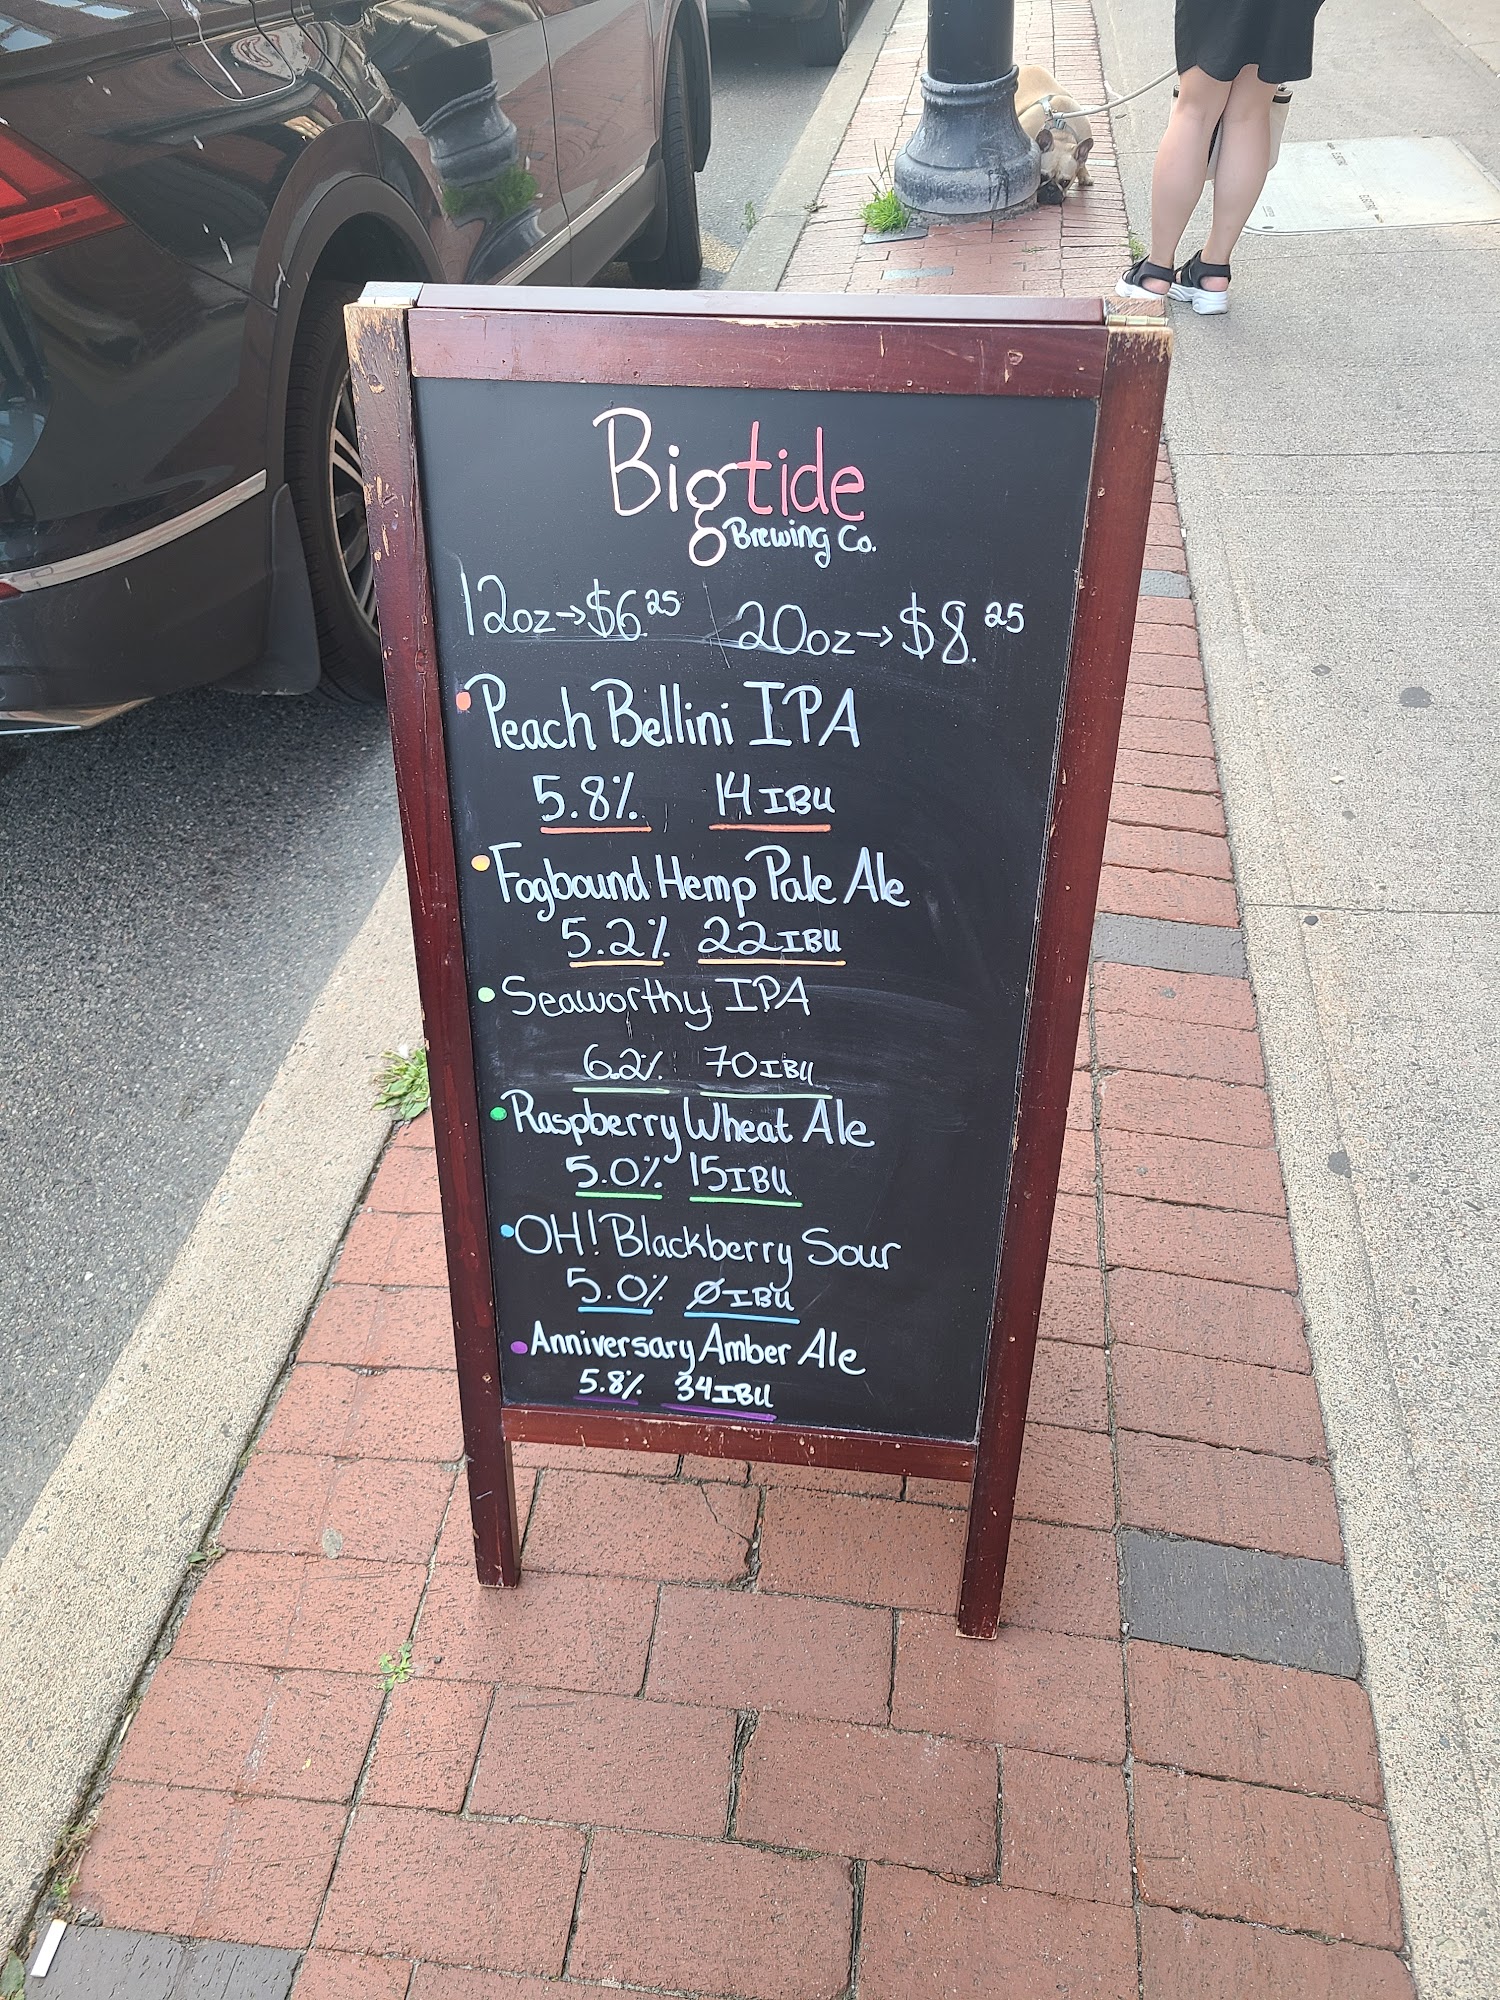 Bigtide
Brewing Co.
12oz→$6.25 20oz→$8.25
Peach Bellini IPA
5.8% 14 IBU
Fogbound Hemp Pale Ale
5.2% 22 IBU
Seaworthy IPA
6.2% 70 IBU
Raspberry Wheat Ale
5.0% 15 IBU
OH! Blackberry Sour
5.0% Ø IBU
Anniversary Amber Ale
5.8% 34 IBU